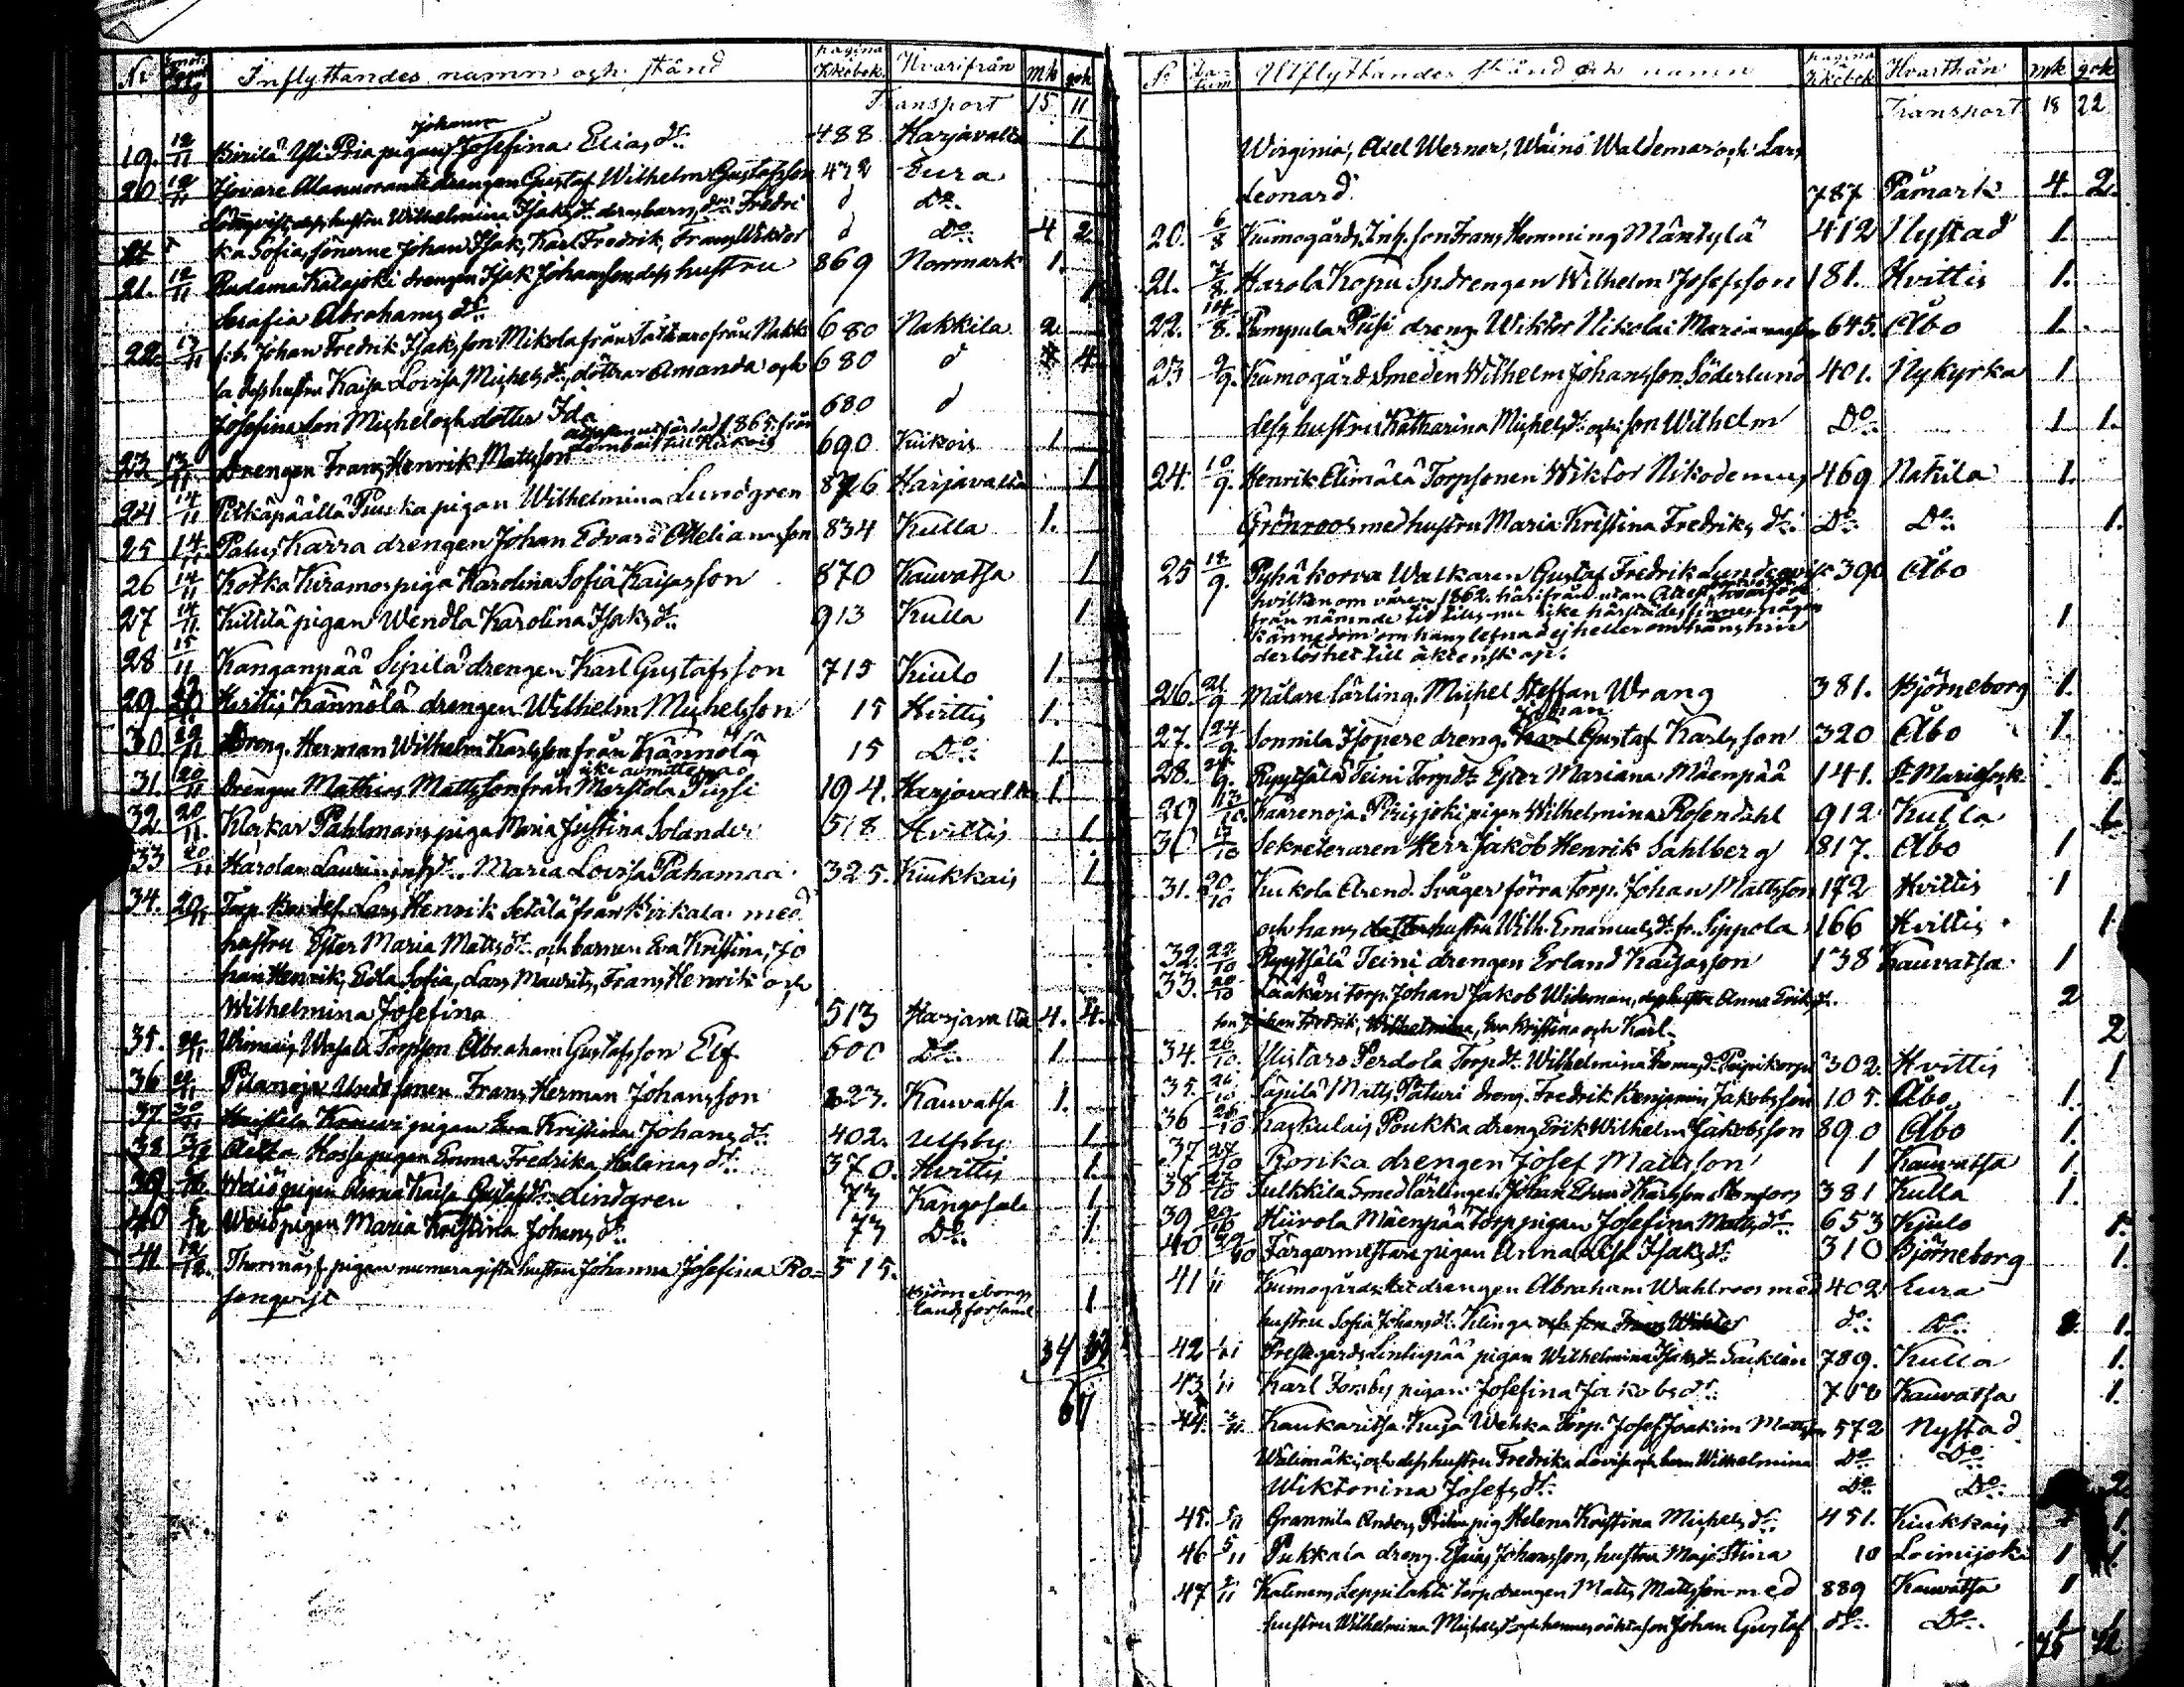 No Inflyttandes namn och stånd pagina Kkobok. Hvarifrån mk qok
Transport 15 11
Johanna
19. 12/11 Pirilä Yli Pria pigan Josefina Elias dr. 488 Harjavalta 1.
20 12/11 drengen Gustaf Wilhelm Gustafsson 472 Eura
hustru Wilhelmina Isaks dr. deras barn, Fredri d Do.
ka Sofia, sönerne Johan Isak, Karl Fredrik, Frans Wiktor d Do 4 2.
21. 12/11 Rudama Katajoki drengen Isak Johansson dess hustru 869 Normark 1.
Serafia Abrahams dr. 1.
22. 13/11 Johan Fredrik Isaksson Mikola från Nakki 680 Nakkila 2
la dess hustru Kaisa Lovisa Michels dr, döttrar Amanda och 680 d 4
Josefina son Michel och dotter Ida 680 d
attesten utfärdad 1865 från
till Kiukois
23 13/11 Drengen Frans Henrik Mattsson 690 Kiukois 1
24 14/11 Pitkäpäälä Piuska pigan Wilhelmina Lundgren 876 Harjavalta 1
25 14/11 Palus Karra drengen Johan Edvard Otteliansson 834 Kulla 1.
26 14/11 Kotka Kiramo piga Karolina Sofia Kaisasson 870 Kauvatsa 1
27 14/11. Kittilä pigan Wendla Karolina Isaks dr. 913 Kulla 1
28 15/11 Kanganpää Sipilä drengen Karl Gustafsson 715 Kiulo 1.
29. Hvittis Kännölä drengen Wilhelm Michelsson 15 Hvittis 1.
30 20/11 Dreng. Herman Wilhelm Karlsson från Kännölä 15 Do. 1
31. 20/11 Drengen Mathias Mattsson från Merstola Pussi 194. Harjavalta 1.
32 20/11. Klockar Pahlmans piga Maria Justina Solander 518 Hvittis 1
33 20/11 Härola Laurin inh. dr. Maria Lovisa Pahamaa 325. Kiukkais 1
34. 20/11 Torp. Lars Henrik Setälä från Pirkala med
hustru Ester Maria Matts dr. och barnen Eva Kristina, Jo
han Henrik, Edla Sofia, Lars Maurits, Frans Henrik och
Wilhelmina Josefina 513 Harjavalta 4. 4.
35. Torpson Abraham Gustafsson Elg 600 Do. 1
36 Pilanoja sonen Frans Herman Johansson 823. Kauvatsa 1.
37. 30/11 pigan Eva Kristina Johans dr. 402. Ulfsby 1
38 Hossa pigan Emma Fredrika Helenas dr. 370. Hvittis 1.
39 pigan Anna Kaisa Gustafs dr. Lindgren 73 Kangasala 1
40 pigan Maria Kristina Johans dr. 73 Do. 1.
41. 12/12. pigan numera gifta hustru Johanna Josefina Ro= 515.
senqvist Björneborgs lands forsaml 1
34 33
67
No Da-tum Utflyttandes stånd och namn pagina Kkobok Hvarthän mk qok
Transport 18 22
Wirginia, Axel Werner, Wäinö Waldemar och Lars
Leonard 787 Påmark 4. 2.
20. 6/8 Kumogårds Inh. son Frans Hemming Mäntylä 412 Nystad 1.
21. 7/8. Harola Kopu drengen Wilhelm Josefsson 181. Hvittis 1.
22. 14/8. Pumpula Pusi dreng Wiktor Nikolai Mariansson 645. Åbo 1.
23 9/9. Kumogård Smeden Wilhelm Johansson Söderlund 401. Nykyrka 1
dess hustru Katharina Michels dr. och son Wilhelm Do. 1 1.
24. 10/9. Henrik Torpsonen Wiktor Nikodemus 469 Nakila 1.
Grönroos med hustru Maria Kristina Fredriks dr. Do. Do. 1.
25 18/9. Pyhäkorva Walkaren Gustaf Fredrik Lundqvist 390 Åbo
hvilken om våren 1862. härifrån utan attest
från nämnde tid tills nu icke härstädes finnes någon
kännedom om hans lefnad ej heller om hans hin 1
derlöshet till äktenskap.
26. 21/9 Målare lärling. Michel Steffan Wrang 381. Björneborg 1.
Johan
27. 24/9. Sonnila Isopere dreng. Karl Gustaf Karlsson 320 Åbo 1.
28. Ryytsälä Teini Torp dr. Ester Mariana Mäenpää 141. St Marie sok. 1.
29 Käärenoja pigan Wilhelmina Rosendahl 912 Kulla 1
30 Sekreteraren Herr Jakob Henrik Sahlberg 817. Åbo 1
31. 20/10 Kukola Arend. Svåger förra torp. Johan Mattsson 172 Hvittis 1
och hans hustru Wilh. Emanuels dr. fr. Sippola 166 Hvittis 1.
32. 22/10 Ryytsälä Teini drengen Erland Kaisasson 138 Kauvatsa 1
33. 20/10 Lääkäri torp. Johan Jakob Wideman, dess hustru Anna Eriks dr. 2
son Johan Fredrik, Wilhelmina, Eva Kristina och Karl. 2
34. 26/10. Ylistaro Perdola Torp dr. Wilhelmina 302. Hvittis 1
35. 26/10 Säpilä Matts Paturi dreng. Fredrik Benjamin Jakobsson 105. Åbo 1.
36 26/10 Kaskulais Poukka dreng Erik Wilhelm Jakobsson 890 Åbo 1.
37 27/10 Ronka drengen Josef Mattsson 1 Kauvatsa 1.
38 27/10 Sulkkila Smedlärlingen Johan Edvard Karlsson Stenfors 381 Kulla 1.
39 Hiirola Mäenpää Torp pigan Josefina Matts dr. 653 Kjulo 1.
40 Färgarmästare pigan Anna Lisa Isaks dr. 310 Björneborg 1.
41 Kumogårds drengen Abraham Wahlroos med 402 Eura
hustru Sofia Johans dr. Klinga och son Frans Wiktor do. Do. 2. 1.
42 Prestegårds Lintupää pigan Wilhelmina Isaks dr. 789. Kulla 1.
43 Karl Forsby pigan Josefina Jakobs dr. Kauvatsa 1.
44. Kaukaritsa Kuja Wehka Torp. Josef Joakim Mattsson 572 Nystad
Wälimäki, och dess hustru Fredrika Lovisa och barn Wilhelmina Do. Do.
Wiktorina Josefs dr. Do. Do. 2.
45. Grannila Anders pig Helena Kristina Michels dr. 451. Kiukkais 1.
46 5/11 Pukkala dreng. Esaias Johansson, hustru Maja Stina 10 Loimijoki 1 1.
47 Leppilahti torp drengen Matts Mattsson med 889 Kauvatsa 1
hustru Wilhelmina Michels dr. och hennes oäkta son Johan Gustaf do. Do. 1